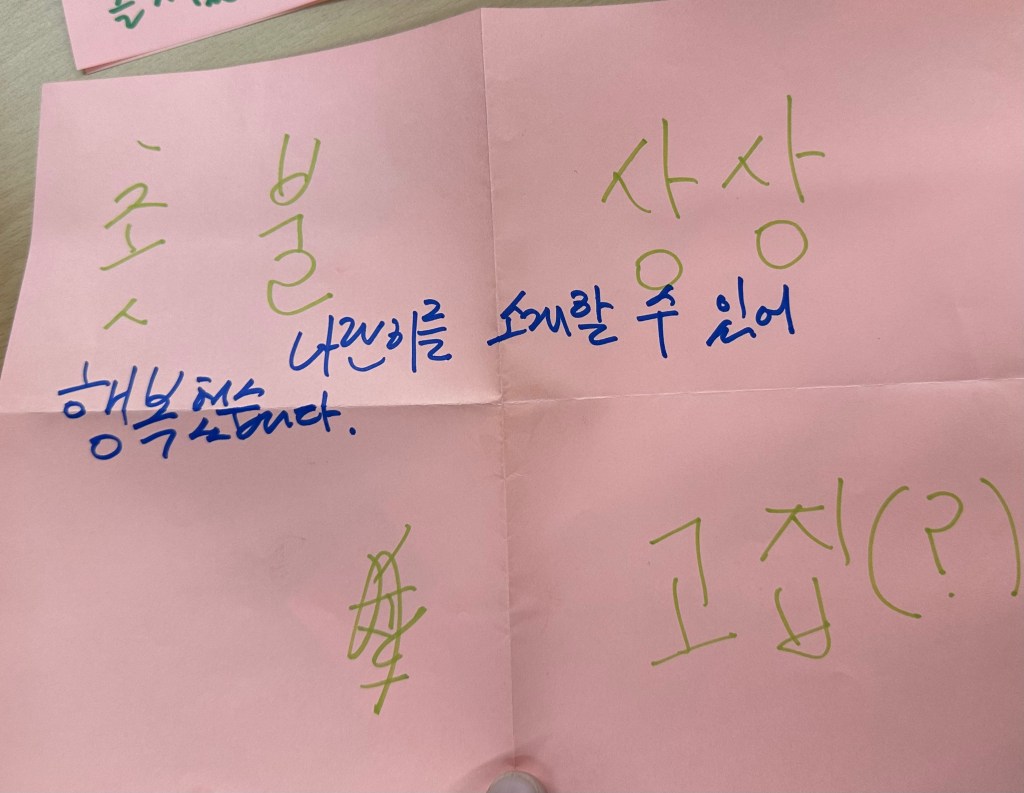 촛불 상상
나란히를 소개할 수 있어
행복했습니다.
고집(?)